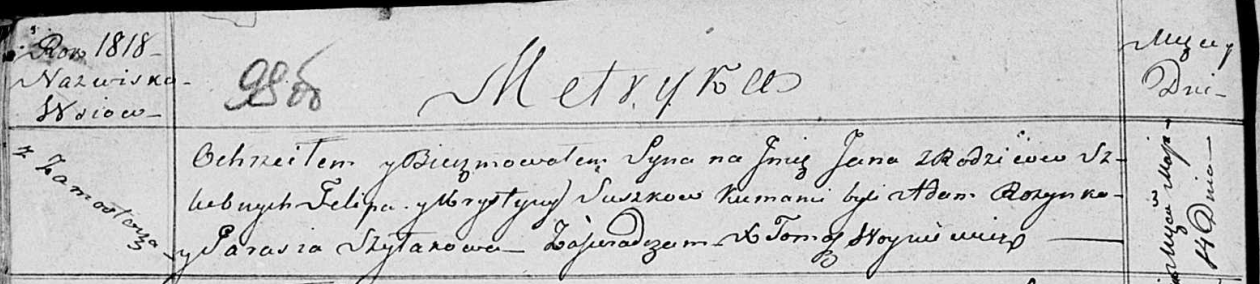 Rok 1818
Nazwisko
Wsiow
98 об
Metryka
Mięcy
Dni
z Zamosterza
Ochrzciłem y Bierzmowałem Syna na Jmię Jana z Rodziców Sz-
lubnych Felipa y Krystyny Suszkow Kumami byli Adam Rozynko
y Parasia Szyłakowa Zaswiadczam X Tomasz Woyniewicz
Mięca Maja
14 Dnia